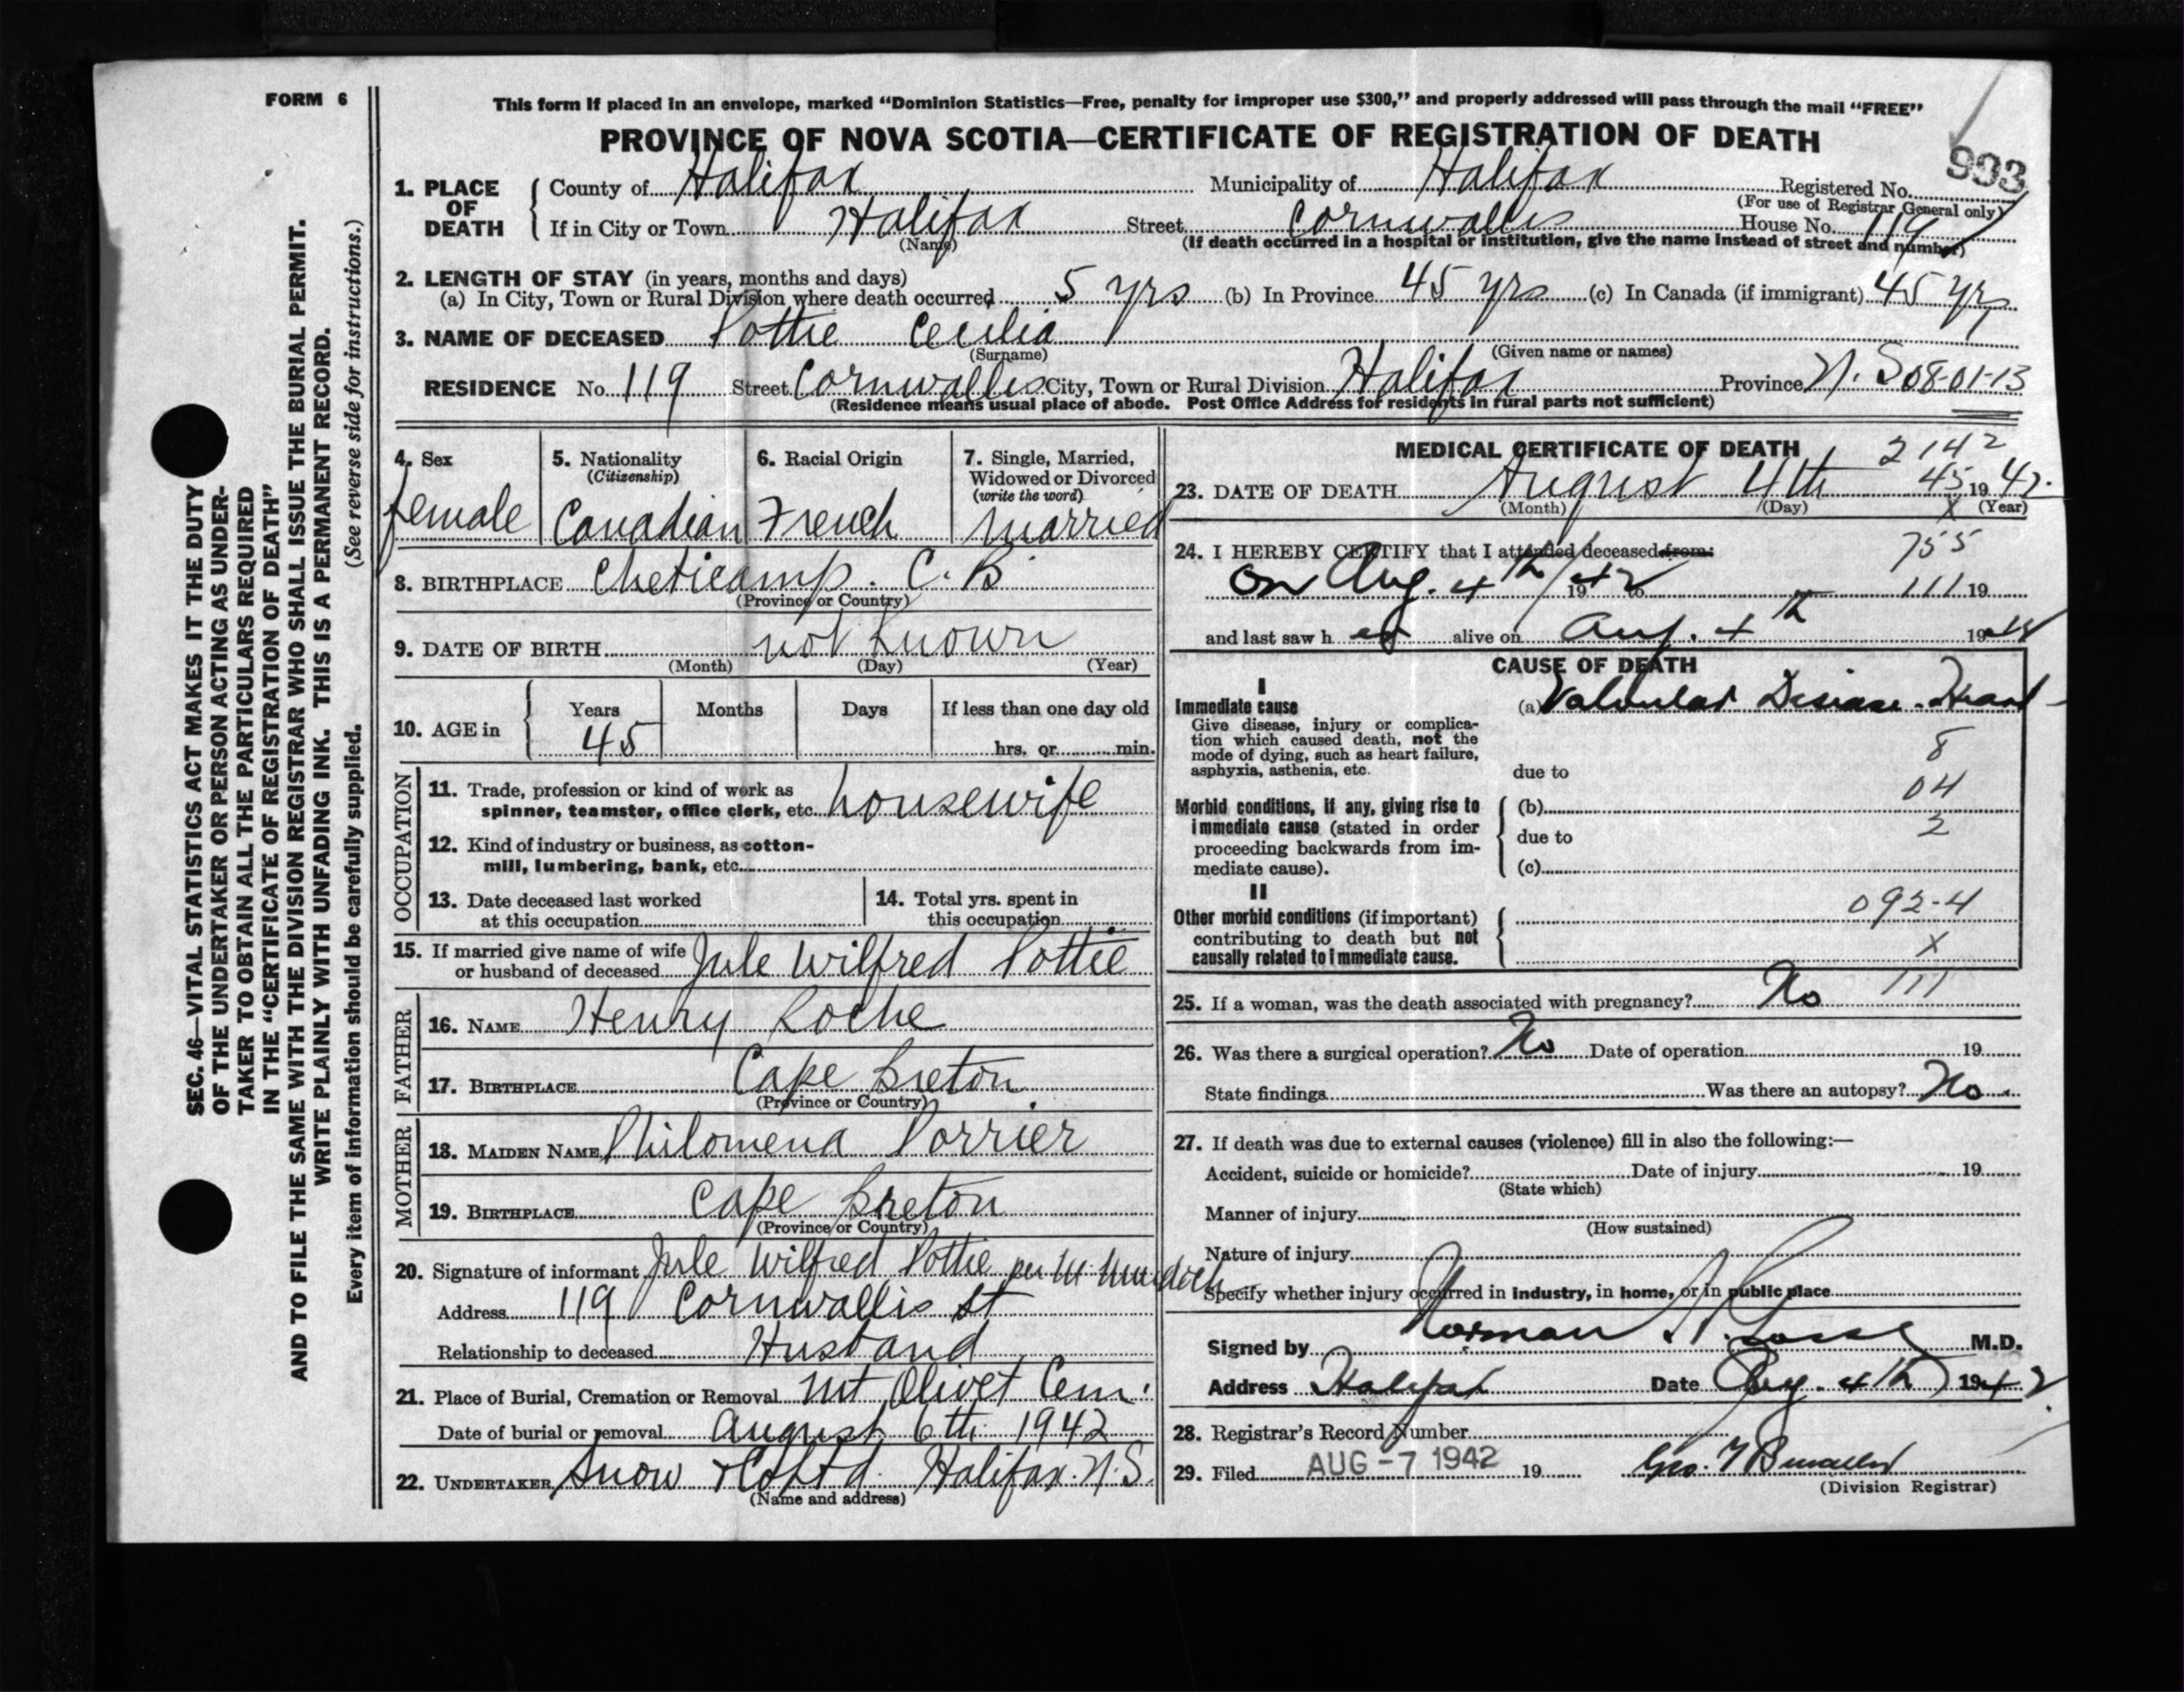 FORM 6
This form if placed in an envelope, marked “Dominion Statistics—Free, penalty for improper use $300,” and properly addressed will pass through the mail “FREE”
PROVINCE OF NOVA SCOTIA—CERTIFICATE OF REGISTRATION OF DEATH
993
1. PLACE OF DEATH { County of Halifax Municipality of Halifax Registered No.
(For use of Registrar General only)
If in City or Town Halifax Street Cornwallis House No. 119
(Name) (If death occurred in a hospital or institution, give the name instead of street and number)
2. LENGTH OF STAY (in years, months and days)
(a) In City, Town or Rural Division where death occurred 5 yrs (b) In Province 45 yrs (c) In Canada (if immigrant) 45 yrs
3. NAME OF DECEASED Pottie Cecilia
(Surname) (Given name or names)
RESIDENCE No. 119 Street Cornwallis City, Town or Rural Division Halifax Province N. S 08-01-13
(Residence means usual place of abode. Post Office Address for residents in rural parts not sufficient)
4. Sex female
5. Nationality (Citizenship) Canadian
6. Racial Origin French
7. Single, Married, Widowed or Divorced (write the word) Married
8. BIRTHPLACE Cheticamp. C. B
(Province or Country)
9. DATE OF BIRTH not known
(Month) (Day) (Year)
10. AGE in { Years Months Days If less than one day old
45 hrs. or min.
OCCUPATION
11. Trade, profession or kind of work as
spinner, teamster, office clerk, etc. housewife
12. Kind of industry or business, as cotton-
mill, lumbering, bank, etc.
13. Date deceased last worked
at this occupation
14. Total yrs. spent in
this occupation
15. If married give name of wife
or husband of deceased Jule Wilfred Pottie
FATHER
16. NAME Henry Roche
17. BIRTHPLACE Cape Breton
(Province or Country)
MOTHER
18. MAIDEN NAME Philomena Porrier
19. BIRTHPLACE Cape Breton
(Province or Country)
20. Signature of informant Jule Wilfred Pottie per M Murdoch
Address 119 Cornwallis St
Relationship to deceased Husband
21. Place of Burial, Cremation or Removal Mt Olivet Cem.
Date of burial or removal August 6th 1942
22. UNDERTAKER Snow & Co Ltd. Halifax. N. S.
(Name and address)
MEDICAL CERTIFICATE OF DEATH 2142
23. DATE OF DEATH August 4th 45 19 42.
(Month) (Day) X (Year)
24. I HEREBY CERTIFY that I attended deceased from: 755
On Aug. 4th/42 19 to 111 19
and last saw h er alive on Aug. 4th 19
CAUSE OF DEATH
I
Immediate cause (a) Valvular Disease. Heart
Give disease, injury or complica-
tion which caused death, not the
mode of dying, such as heart failure,
asphyxia, asthenia, etc.
8
due to
04
Morbid conditions, if any, giving rise to
immediate cause (stated in order
proceeding backwards from im-
mediate cause).
(b)
2
due to
(c)
II
Other morbid conditions (if important)
contributing to death but not
causally related to immediate cause.
092-4
X
111
25. If a woman, was the death associated with pregnancy? No
26. Was there a surgical operation? No Date of operation 19
State findings Was there an autopsy? No.
27. If death was due to external causes (violence) fill in also the following:—
Accident, suicide or homicide? Date of injury 19
(State which)
Manner of injury
(How sustained)
Nature of injury
Specify whether injury occurred in industry, in home, or in public place
Signed by Norman H. M.D.
Address Halifax Date Aug. 4th 1942
28. Registrar's Record Number
29. Filed AUG -7 1942 19 Geo.
(Division Registrar)
SEC. 46—VITAL STATISTICS ACT MAKES IT THE DUTY
OF THE UNDERTAKER OR PERSON ACTING AS UNDER-
TAKER TO OBTAIN ALL THE PARTICULARS REQUIRED
IN THE “CERTIFICATE OF REGISTRATION OF DEATH”
AND TO FILE THE SAME WITH THE DIVISION REGISTRAR WHO SHALL ISSUE THE BURIAL PERMIT.
WRITE PLAINLY WITH UNFADING INK. THIS IS A PERMANENT RECORD.
Every item of information should be carefully supplied. (See reverse side for instructions.)